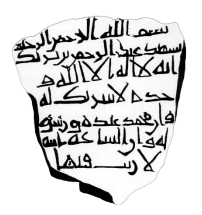 بسم الله الرحمن الرحيم
شهد عبد الرحمن بن
انه لا اله الا الله و
حده لا شريك له
وان محمد عبده ورسو
له وان الساعة اتية
لا ريب فيها